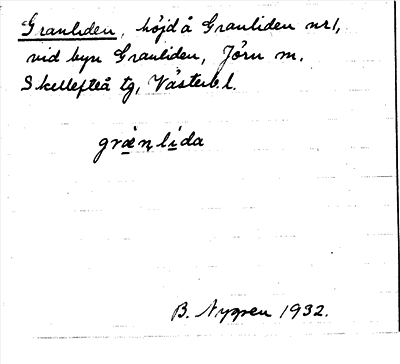 Granliden, höjd å Granliden nr 1,
vid byn Granliden, Jörn sn.
Skellefteå tg, Västerb. l.
grænlida
B. Nygren 1932.